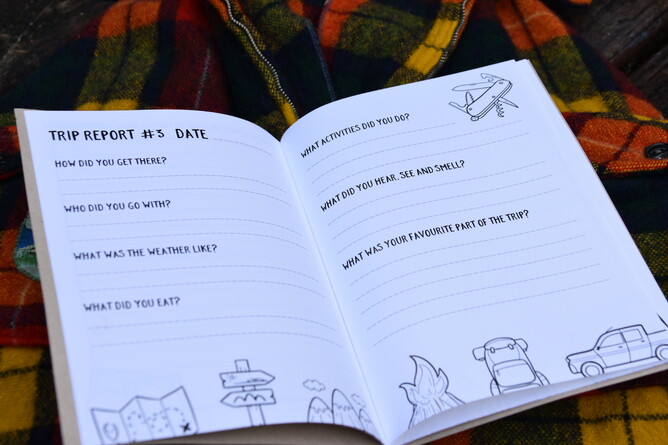 TRIP REPORT #3 DATE
HOW DID YOU GET THERE?
WHO DID YOU GO WITH?
WHAT WAS THE WEATHER LIKE?
WHAT DID YOU EAT?
WHAT ACTIVITIES DID YOU DO?
WHAT DID YOU HEAR, SEE AND SMELL?
WHAT WAS YOUR FAVOURITE PART OF THE TRIP?